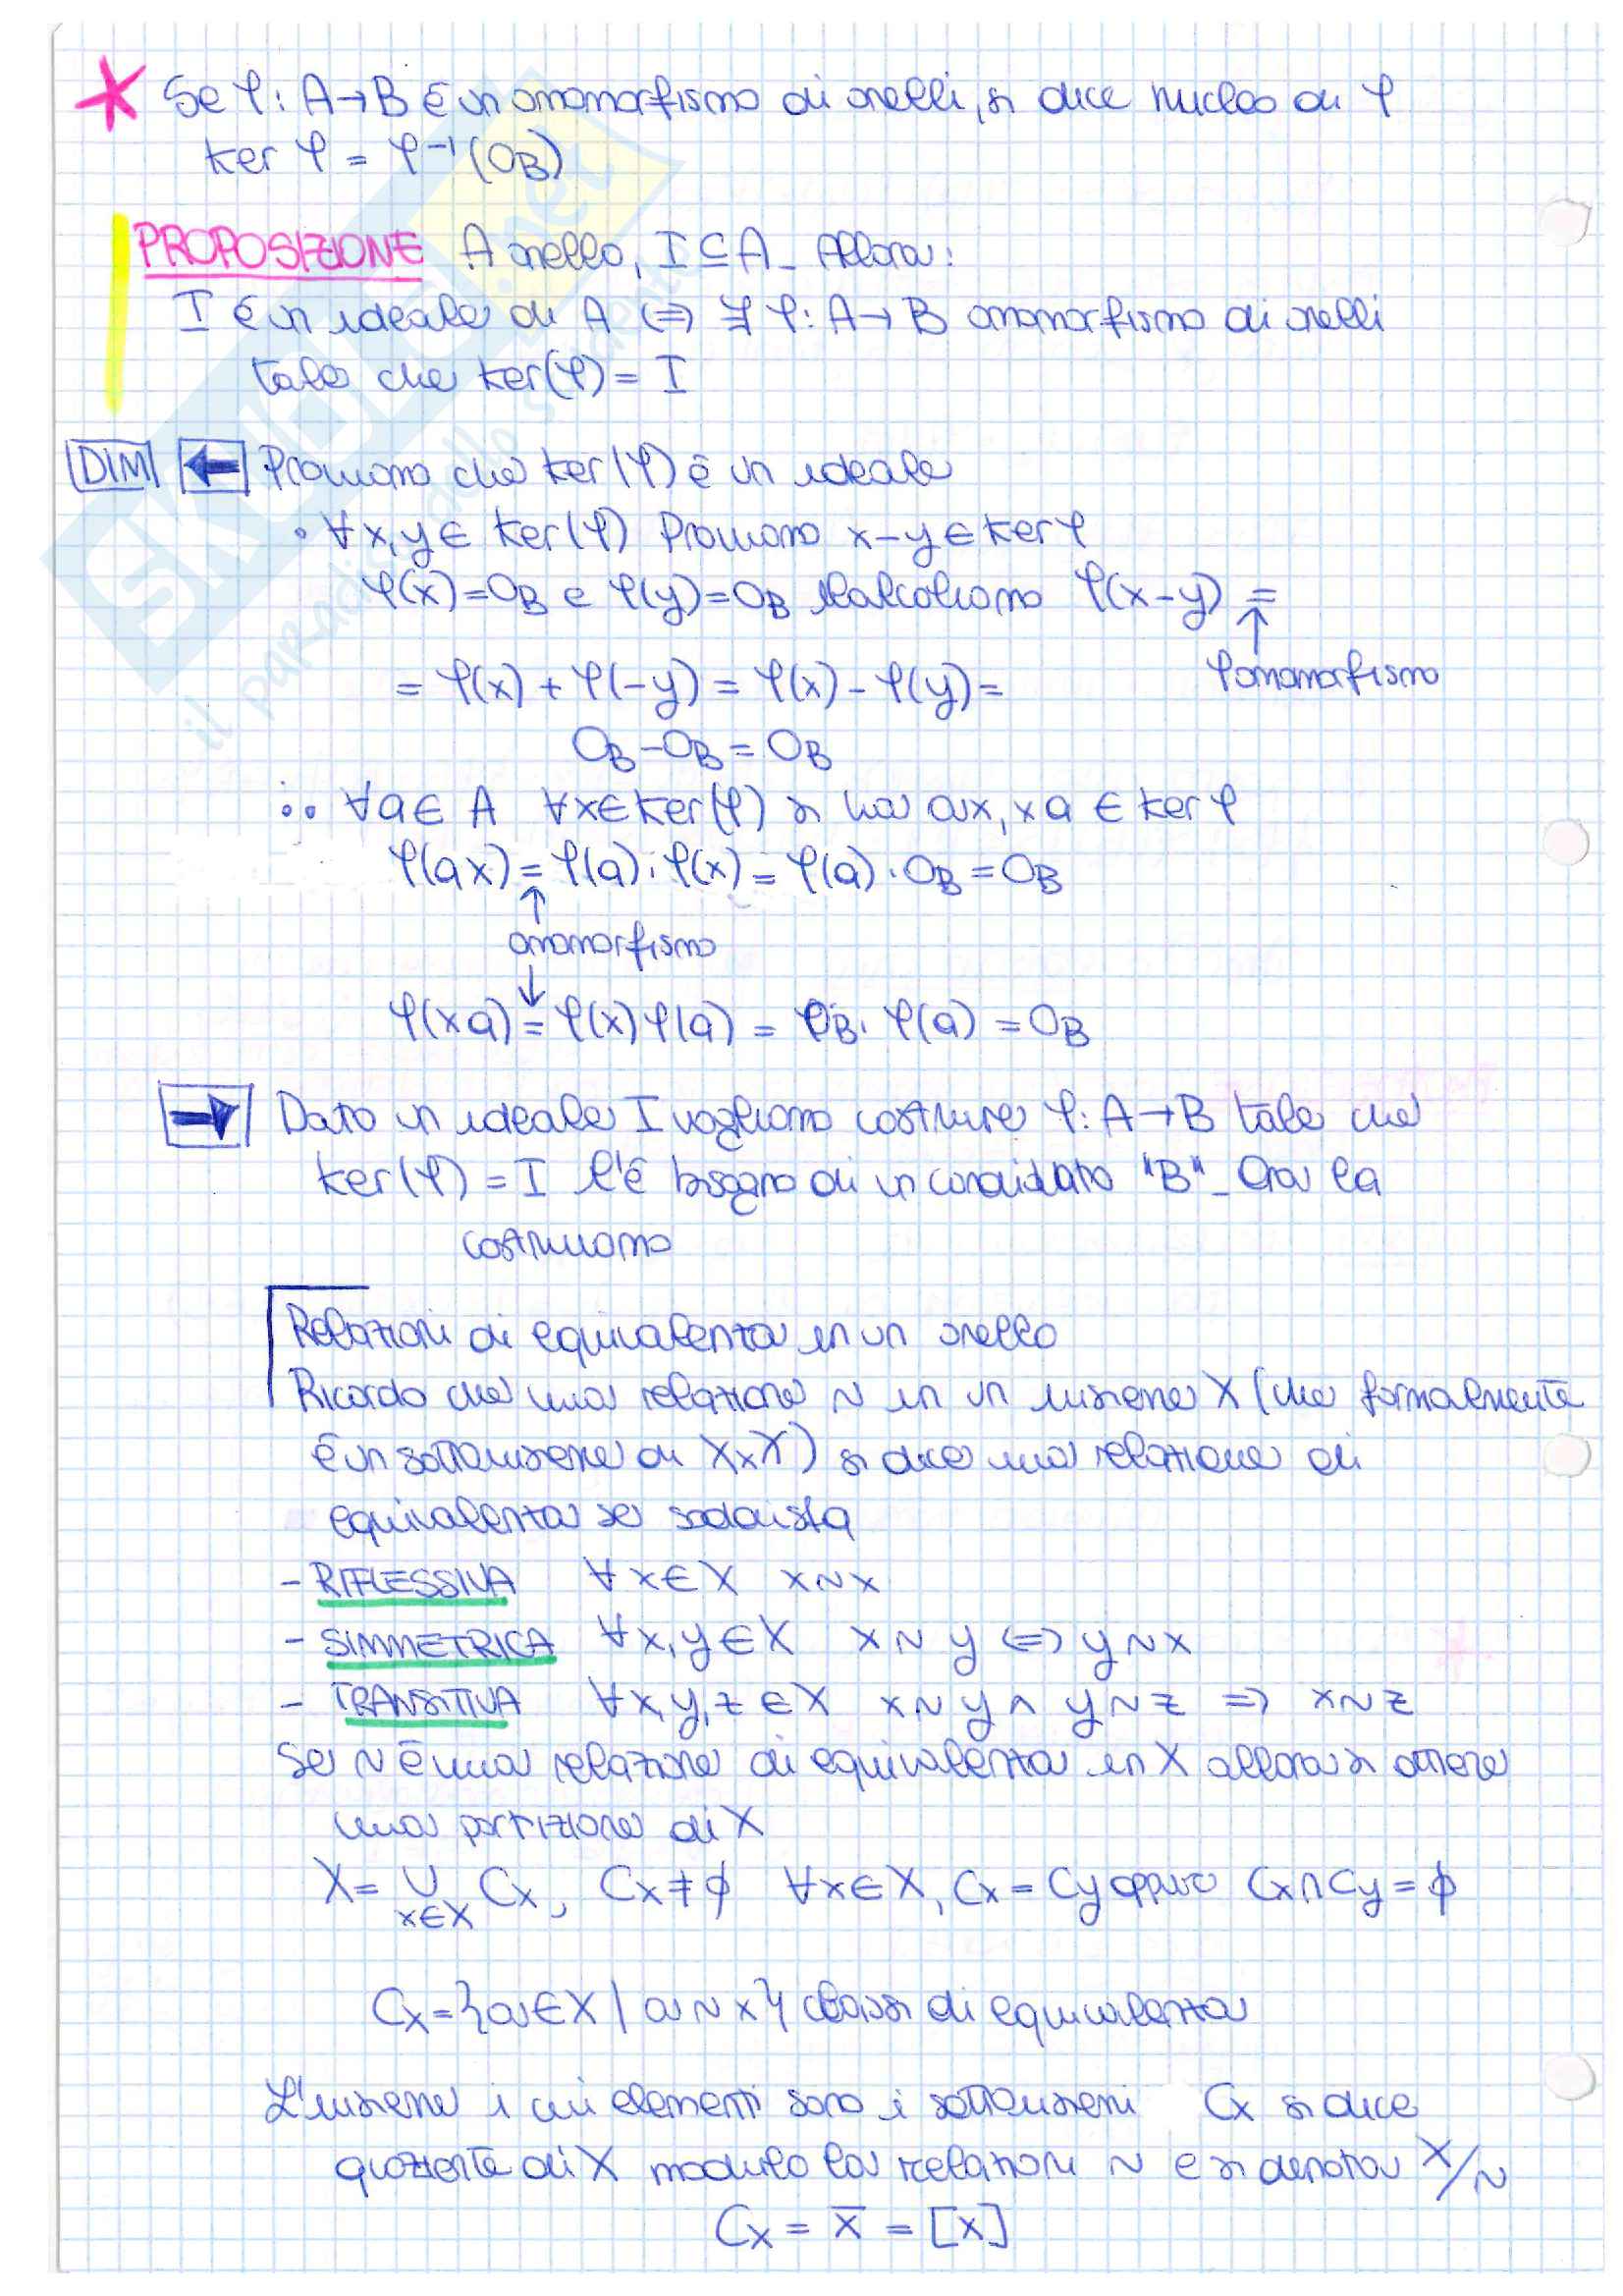 Se φ: A→B è un omomorfismo di anelli, si dice nucleo di φ
ker φ = φ⁻¹(0_B)
PROPOSIZIONE A anello, I ⊆ A. Allora:
I è un ideale di A ⇔ ∃ φ: A→B omomorfismo di anelli
tale che ker(φ) = I
DIM ← Proviamo che ker(φ) è un ideale
• ∀x,y ∈ ker(φ) Proviamo x-y ∈ ker φ
φ(x)=0_B e φ(y)=0_B Calcoliamo φ(x-y) =
↑
φ omomorfismo
= φ(x) + φ(-y) = φ(x) - φ(y) =
0_B - 0_B = 0_B
•• ∀a ∈ A ∀x ∈ ker(φ) si ha ax, xa ∈ ker φ
φ(ax) = φ(a)·φ(x) = φ(a)·0_B = 0_B
↑
omomorfismo
↓
φ(xa) = φ(x)φ(a) = 0_B·φ(a) = 0_B
→ Dato un ideale I vogliamo costruire φ: A→B tale che
ker(φ) = I C'è bisogno di un candidato "B". Ora lo
costruiamo
Relazioni di equivalenza in un anello
Ricordo che una relazione ~ in un insieme X (che formalmente
è un sottoinsieme di X×X) si dice una relazione di
equivalenza se soddisfa
- RIFLESSIVA ∀x∈X x~x
- SIMMETRICA ∀x,y∈X x~y ⇔ y~x
- TRANSITIVA ∀x,y,z ∈X x~y ∧ y~z ⇒ x~z
Se ~ è una relazione di equivalenza in X allora si ottiene
una partizione di X
X = ∪ Cx, Cx ≠ ∅ ∀x∈X, Cx = Cy oppure Cx∩Cy = ∅
x∈X
Cx = {a∈X | a~x} classi di equivalenza
L'insieme i cui elementi sono i sottoinsiemi Cx si dice
quoziente di X modulo la relazioni ~ e si denota X/~
Cx = x̅ = [x]
SKUOLA.net
il paradiso dello studente